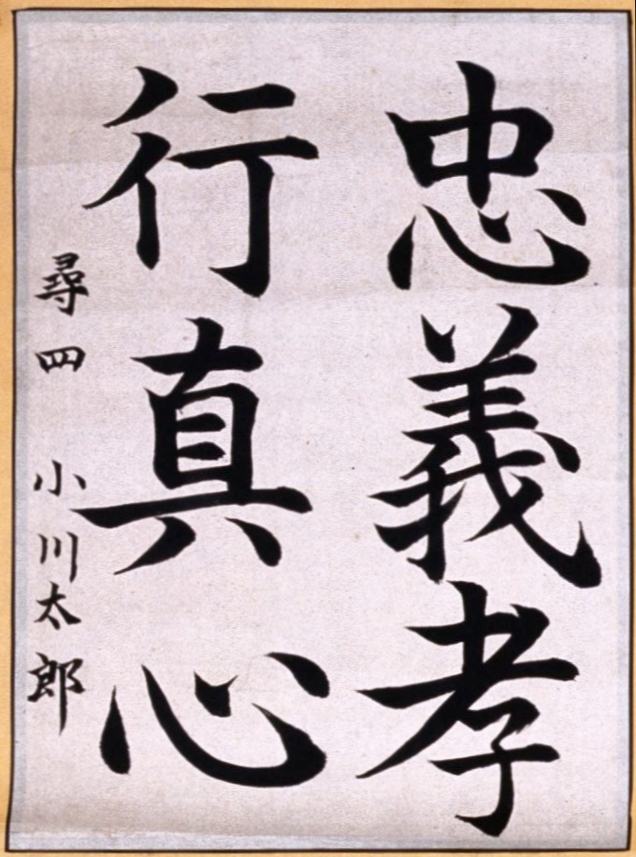 忠義孝
行真心
尋四 小川太郎